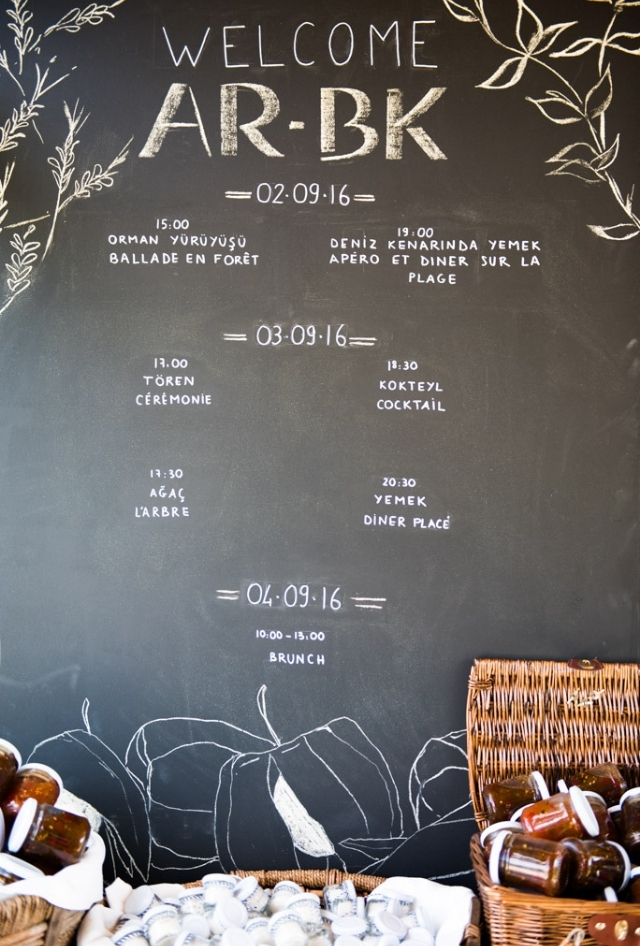 WELCOME
AR-BK
02.09.16
15:00
ORMAN YÜRÜYÜŞÜ
BALLADE EN FORÊT
19:00
DENİZ KENARINDA YEMEK
APÉRO ET DINER SUR LA
PLAGE
03.09.16
17.00
TÖREN
CÉRÉMONIE
18:30
KOKTEYL
COCKTAIL
17:30
AĞAÇ
L'ARBRE
20:30
YEMEK
DİNER PLACÉ
04.09.16
10:00-13:00
BRUNCH